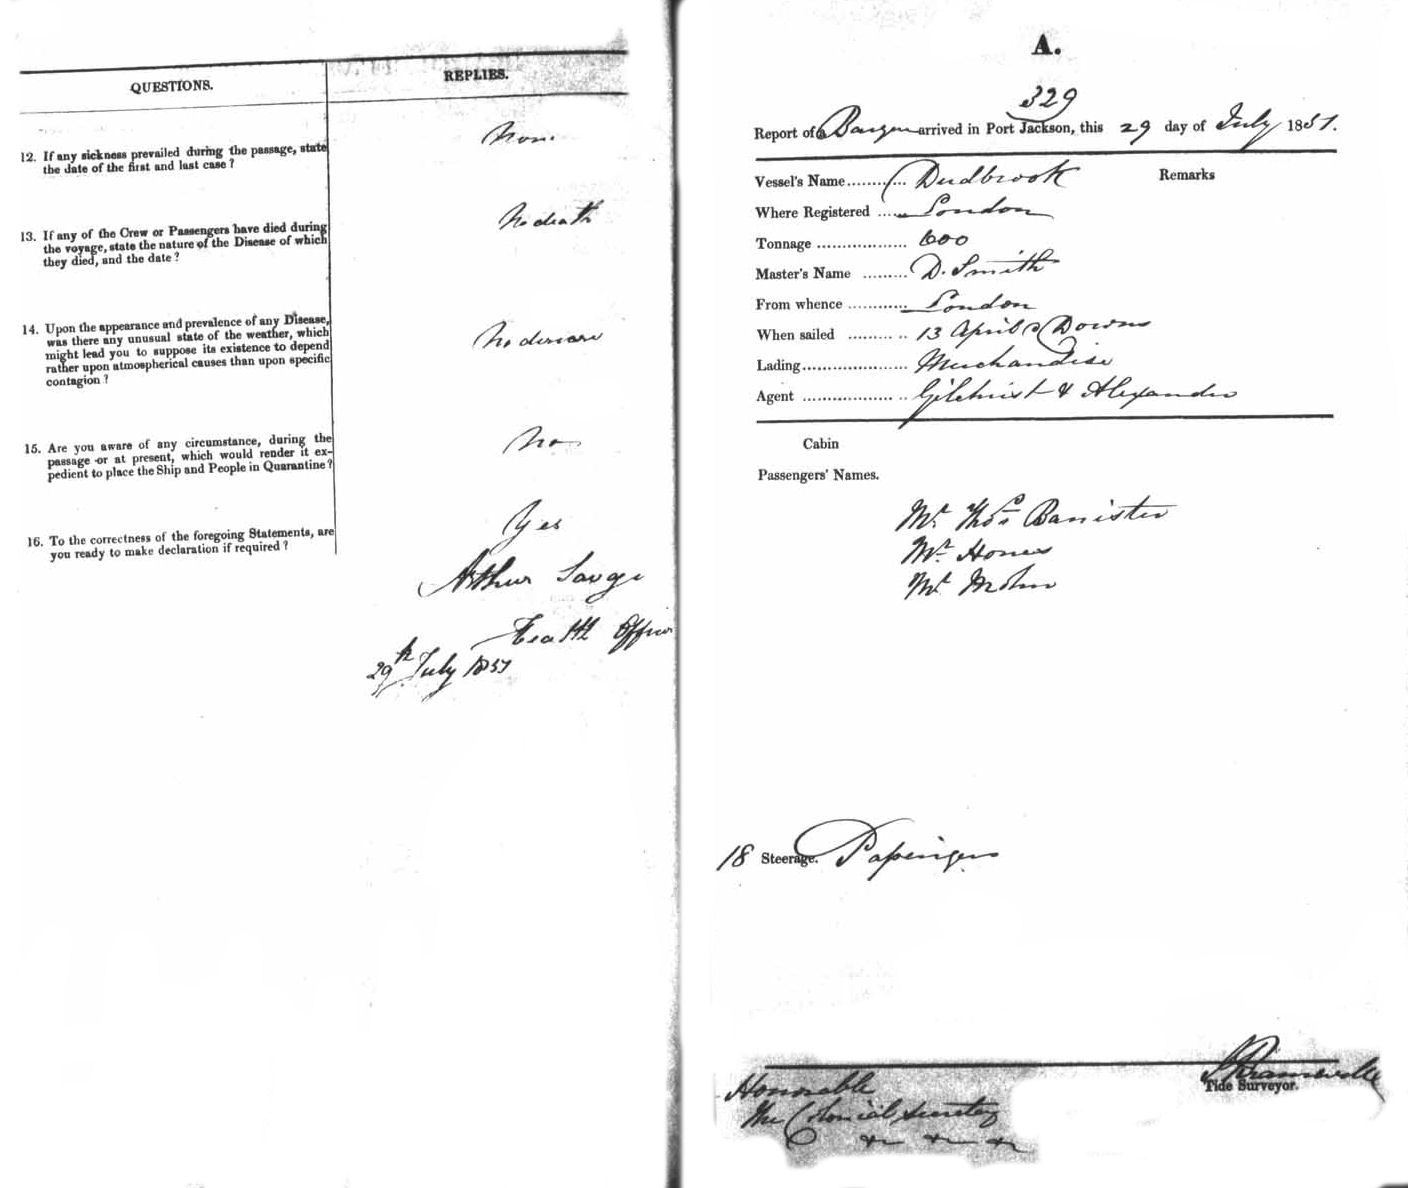 QUESTIONS.
REPLIES.
12. If any sickness prevailed during the passage, state
the date of the first and last case?
None
13. If any of the Crew or Passengers have died during
the voyage, state the nature of the Disease of which
they died, and the date?
No death
14. Upon the appearance and prevalence of any Disease,
was there any unusual state of the weather, which
might lead you to suppose its existence to depend
rather upon atmospherical causes than upon specific
contagion?
No disease
15. Are you aware of any circumstance, during the
passage or at present, which would render it ex-
pedient to place the Ship and People in Quarantine?
No
16. To the correctness of the foregoing Statements, are
you ready to make declaration if required?
Yes
Arthur Savage
Health Officer
29th July 1837
A.
329
Report of a Barque arrived in Port Jackson, this 29 day of July 1837.
Vessel's Name........ Dudbrook
Remarks
Where Registered ..... London
Tonnage .................. 600
Master's Name ......... D. Smith
From whence ............ London
When sailed ......... .. 13 April Downs
Lading..................... Merchandise
Agent .................. .. Gilchrist & Alexander
Cabin
Passengers' Names.
Mr. Thos. Banister
Mr.
Mr.
18 Steerage. Passengers
Tide Surveyor.
Honorable
The Colonial Secretary